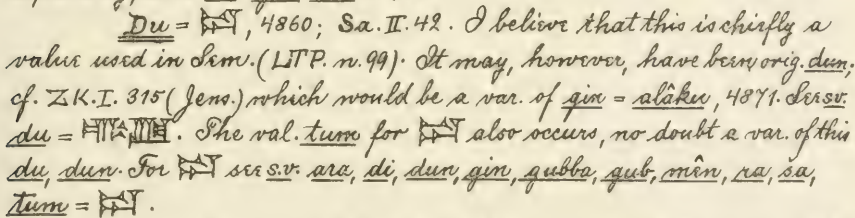 Du = 𒁺, 4860; Sa. II. 42. I believe that this is chiefly a
value used in Sem. (LTP. n. 99). It may, however, have been orig. dun;
cf. ZK. I. 315 (Jens.) which would be a var. of gin = alâku, 4871. See s.v.
du = . The val. tum for 𒁺 also occurs, no doubt a var. of this
du, dun. For 𒁺 see s.v. ara, di, dun, gin, gubba, gub, mên, ra, sa,
tum = 𒁺.